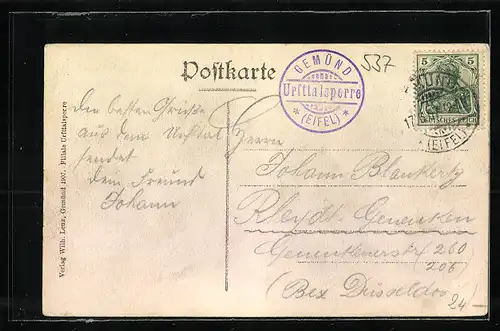 Postkarte
537
GEMÜND
Urfttalsperre
* (EIFEL) *
5 5
DEUTSCHES REICH
GEMÜND
17
* (EIFEL) *
Die besten Grüße
aus dem Urfttal
sendet
Dein Freund
Johann
Herrn
Johann Blankertz
Rheydt-Geneicken
Geneickenerstr 260
206
(Bez Düsseldorf)
24
Verlag Wilh. Lenz, Gemünd 1907. Filiale Urfttalsperre